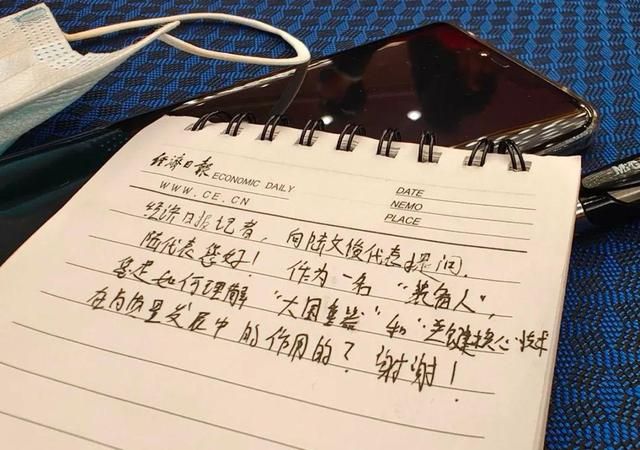 经济日报 ECONOMIC DAILY
WWW.CE.CN
DATE
NEMO
PLACE
经济日报记者，向陆文俊代表提问．
陆代表您好！ 作为一名 “装备人”，
您是如何理解 “大国重器” 和 “关键核心”技术
在高质量发展中的作用的？谢谢！
M&G